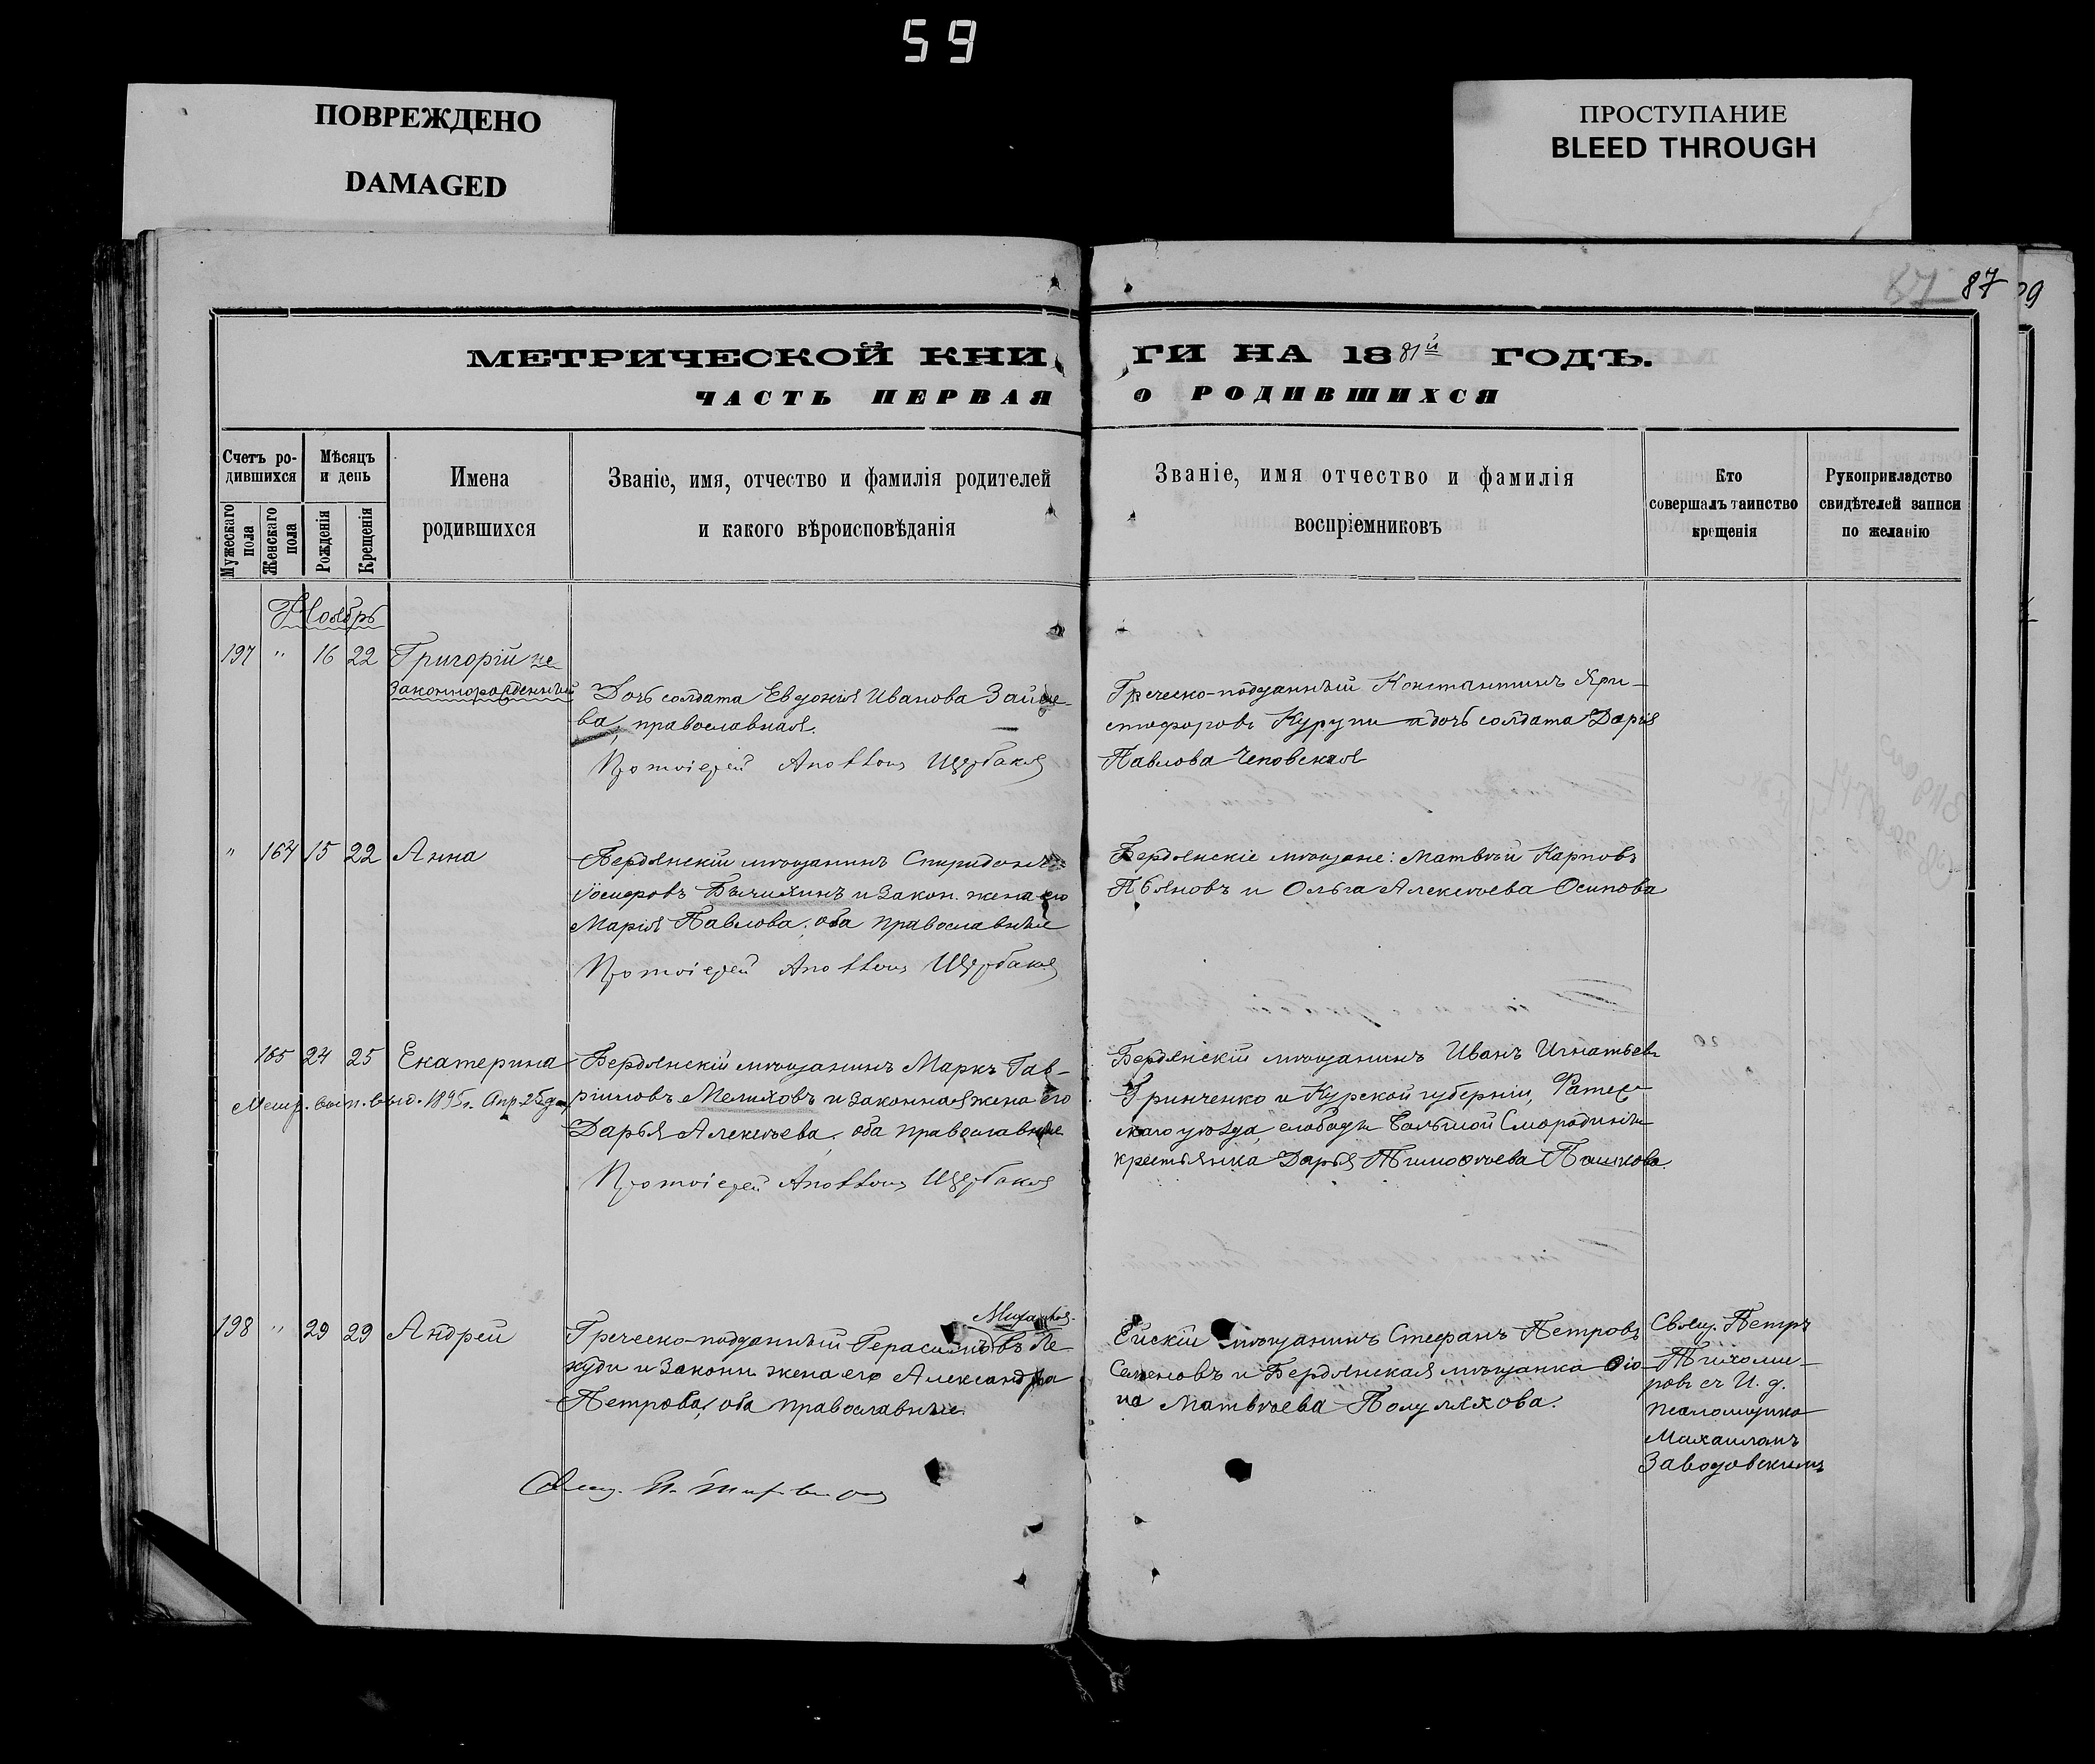 59
ПОВРЕЖДЕНО
DAMAGED
ПРОСТУПАНИЕ
BLEED THROUGH
87
МЕТРИЧЕСКОЙ КНИГИ НА 1881й ГОДЪ.
ЧАСТЬ ПЕРВАЯ О РОДИВШИХСЯ
Счетъ ро-
дившихся
Мужескаго пола
Женскаго пола
Мѣсяцъ
и день
Рожденія
Крещенія
Имена
родившихся
Званіе, имя, отчество и фамилія родителей
и какого вѣроисповѣданія
Званіе, имя отчество и фамилія
воспріемниковъ
Кто
совершалъ таинство
крещенія
Рукоприкладство
свидѣтелей записи
по желанію
Ноябрь
197 " 16 22 Григорій не
законнорожденный
Дочь солдата Евдокія Иванова Зайце-
ва, православная.
Протоіерей
Греческо-подданный Константинъ Хри-
стофоровъ Курупи и дочь солдата Дарія
Павлова Чеповская
" 164 15 22 Анна
Бердянскій мѣщанинъ Спиридонъ
Іосифовъ Бычихинъ и закон. жена его
Марія Павлова, оба православные
Протоіерей
Бердянскіе мѣщане: Матвѣй Карповъ
Пьяновъ и Ольга Алексѣева Осипова
165 24 25 Екатерина
Метр. вып. выд. 1895 г. Апр. 25 дня
Бердянскій мѣщанинъ Маркъ Гав-
ріиловъ Мелиховъ и законная жена его
Дарья Алексѣева, оба православные
Протоіерей
Бердянскій мѣщанинъ Иванъ Игнатьевъ
Гринченко и Курской губерніи, Фатеж-
скаго уѣзда, слободы Большой Смородины
крестьянка Дарья Тимоѳеева Пашкова.
198 " 29 29 Андрей
Греческо-подданный Герасимъ
и законн. жена его Александра
Петрова, оба православные.
Свящ.
Ейскій мѣщанинъ Стефанъ Петровъ
Семеновъ и Бердянская мѣщанка Ѳіо-
на Матвѣева Полуляхова.
Свящ. Петръ
Тихоми-
ровъ съ И. д.
псаломщика
Михаиломъ
Заводовскимъ